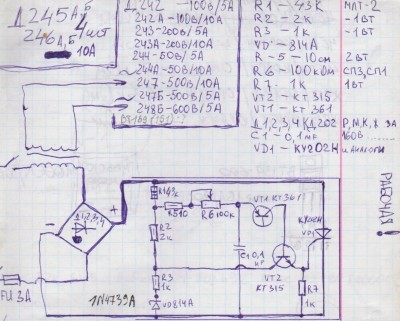 Д245А,Б
246А,Б 4шт
10А
Д 242 - 100В/5А
242А - 100В/10А
243 - 200В/5А
243А - 200В/10А
244 - 50В/5А
244А - 50В/10А
247 - 500В/10А
247Б - 500В/5А
248Б - 600В/5А
R1 - 43К МЛТ-2
R2 - 2К - 1ВТ
R3 - 1К - 1ВТ
VD - 814А
R - 5 - 10ом 2ВТ
R6 - 100Kом СП3,СП1
R7 - 1К 1ВТ
VT2 - КТ 315
VT1 - КТ 361
Д 1,2,3,4 КД202 Р,М,К,Ж ЗА
C1 - 0,1мк 160В
VD1 - КУ202Н и АНАЛОГИ
РАБОЧАЯ!
Д1,2,3,4
+
-
FU 3А
1N4739A
R2
2К
R3
1К
VD814А
R510
R6100К
VT1 КТ361
C1 0,1
VT2
КТ315
КУ202Н
VD1
R7
1К